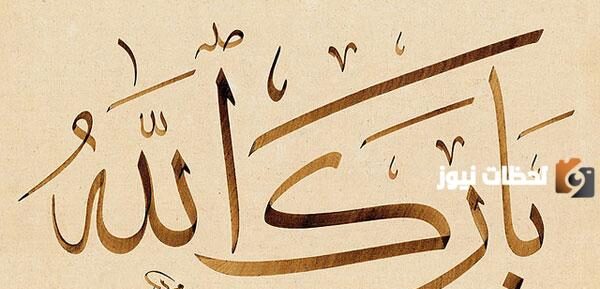 بَارَكَ ٱللَّهُ
لحظات نيوز